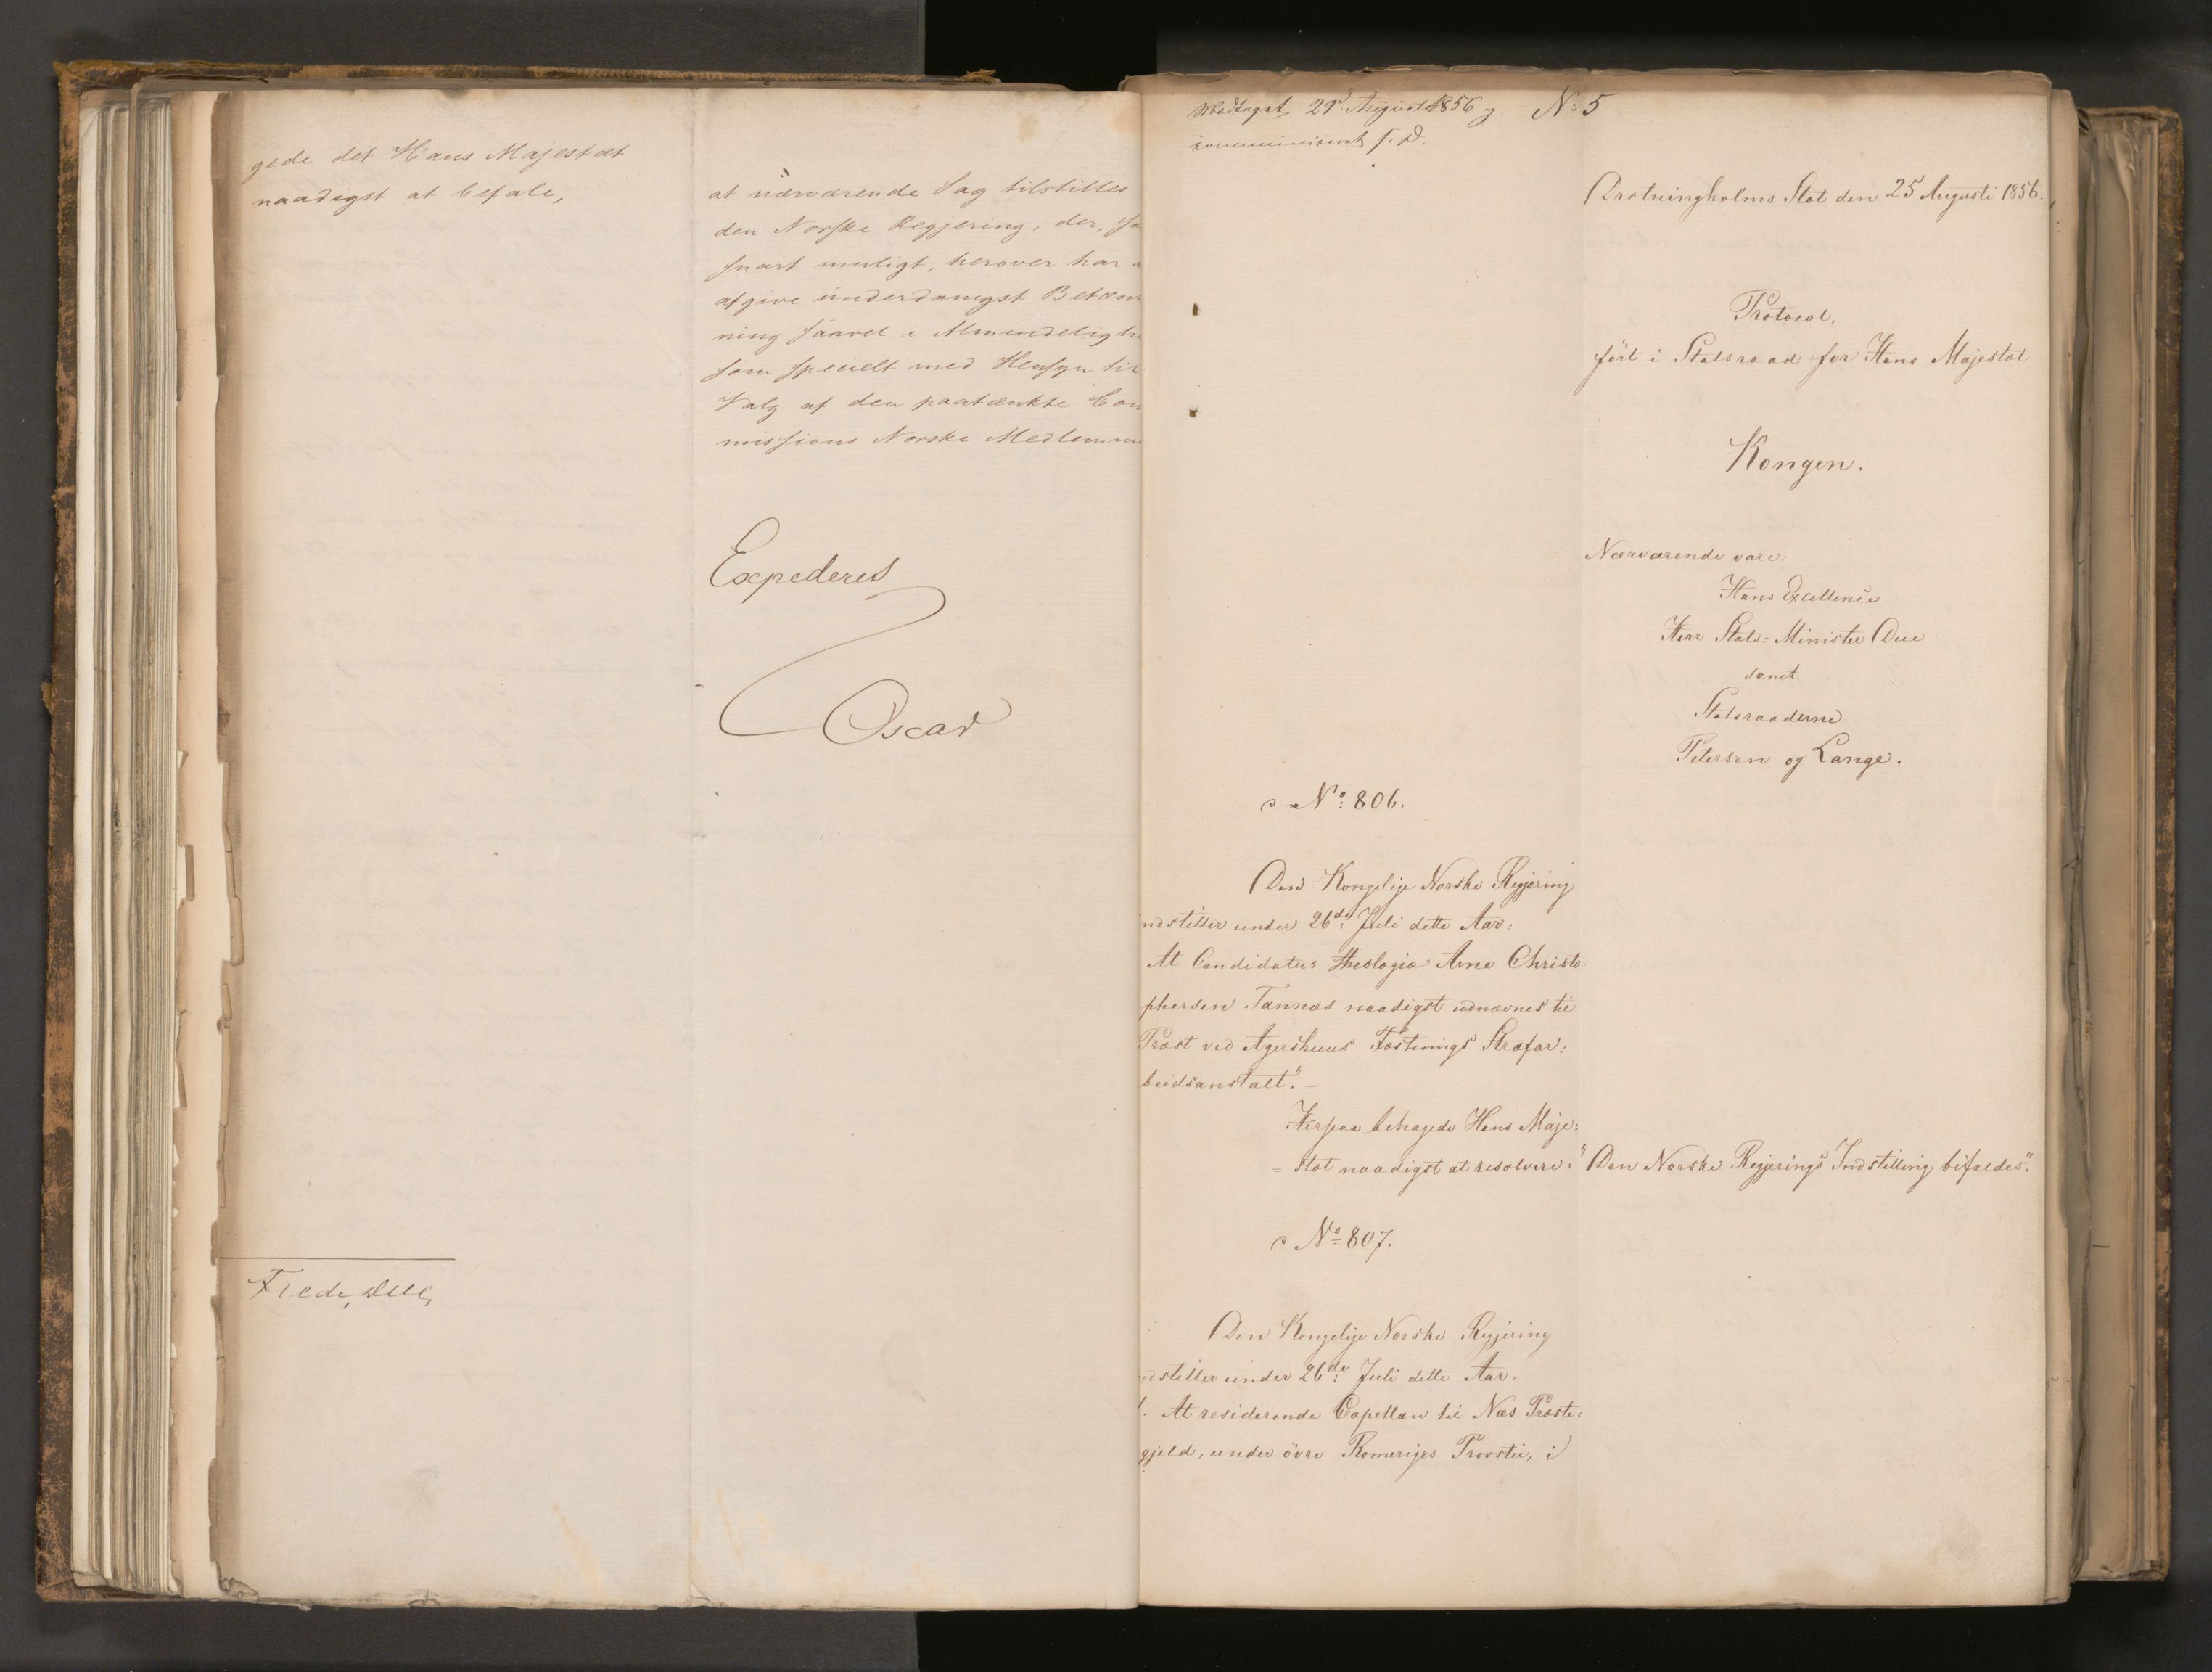 gede det Hans Majestæt
naadigst at befale,
at nærværende Sag tilstilles
den Norske Regjering, der, så
snart muligt, herover har a
afgive underdanigst Betænk
ning såavel i Almindelighe
som specielt med Hensyn til
Valg af den paatænkte Com
missions Norske Medlemme
Expederes
Oscar
Fredr. Due
Modtaget 29d August 1856 og
communiceret s. D.
No 5
Drotningholms Slot den 25 Augusti 1856.
Protocol,
fört i Statsraad for Hans Majestæt
Kongen.
Nærværende vare:
Hans Excellence
Herr Stats-Minister Due
samt
Statsraaderne
Petersen og Lange.
No 806.
Den Kongelige Norske Regjering
indstiller under 26de Juli dette Aar:
At Candidatus theologiæ Arne Christo-
phersen Tannæs naadigst udnævnes til
Præst ved Agershuus Fæstnings Strafar:
beidsanstalt". –
Herpaa behagede Hans Maje:
= stæt naadigst at resolvere: "Den Norske Regjerings Indstilling bifaldes".
No 807.
Den Kongelige Norske Regjering
indstiller under 26de Juli dette Aar.
1. At residerende Capellan til Næs Præste:
gjeld, under övre Romeriges Provstie, i